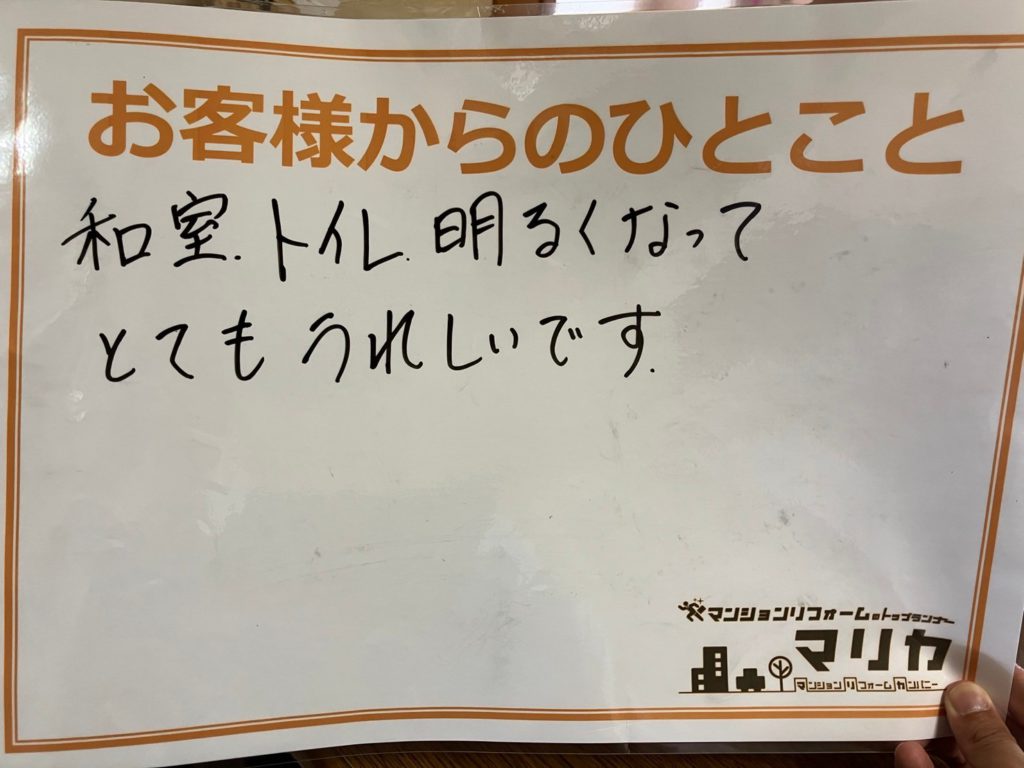 お客様からのひとこと
和室.トイレ.明るくなって
とても うれしいです.
マンションリフォームのトップランナー
マリカ
マンションリフォームカンパニー